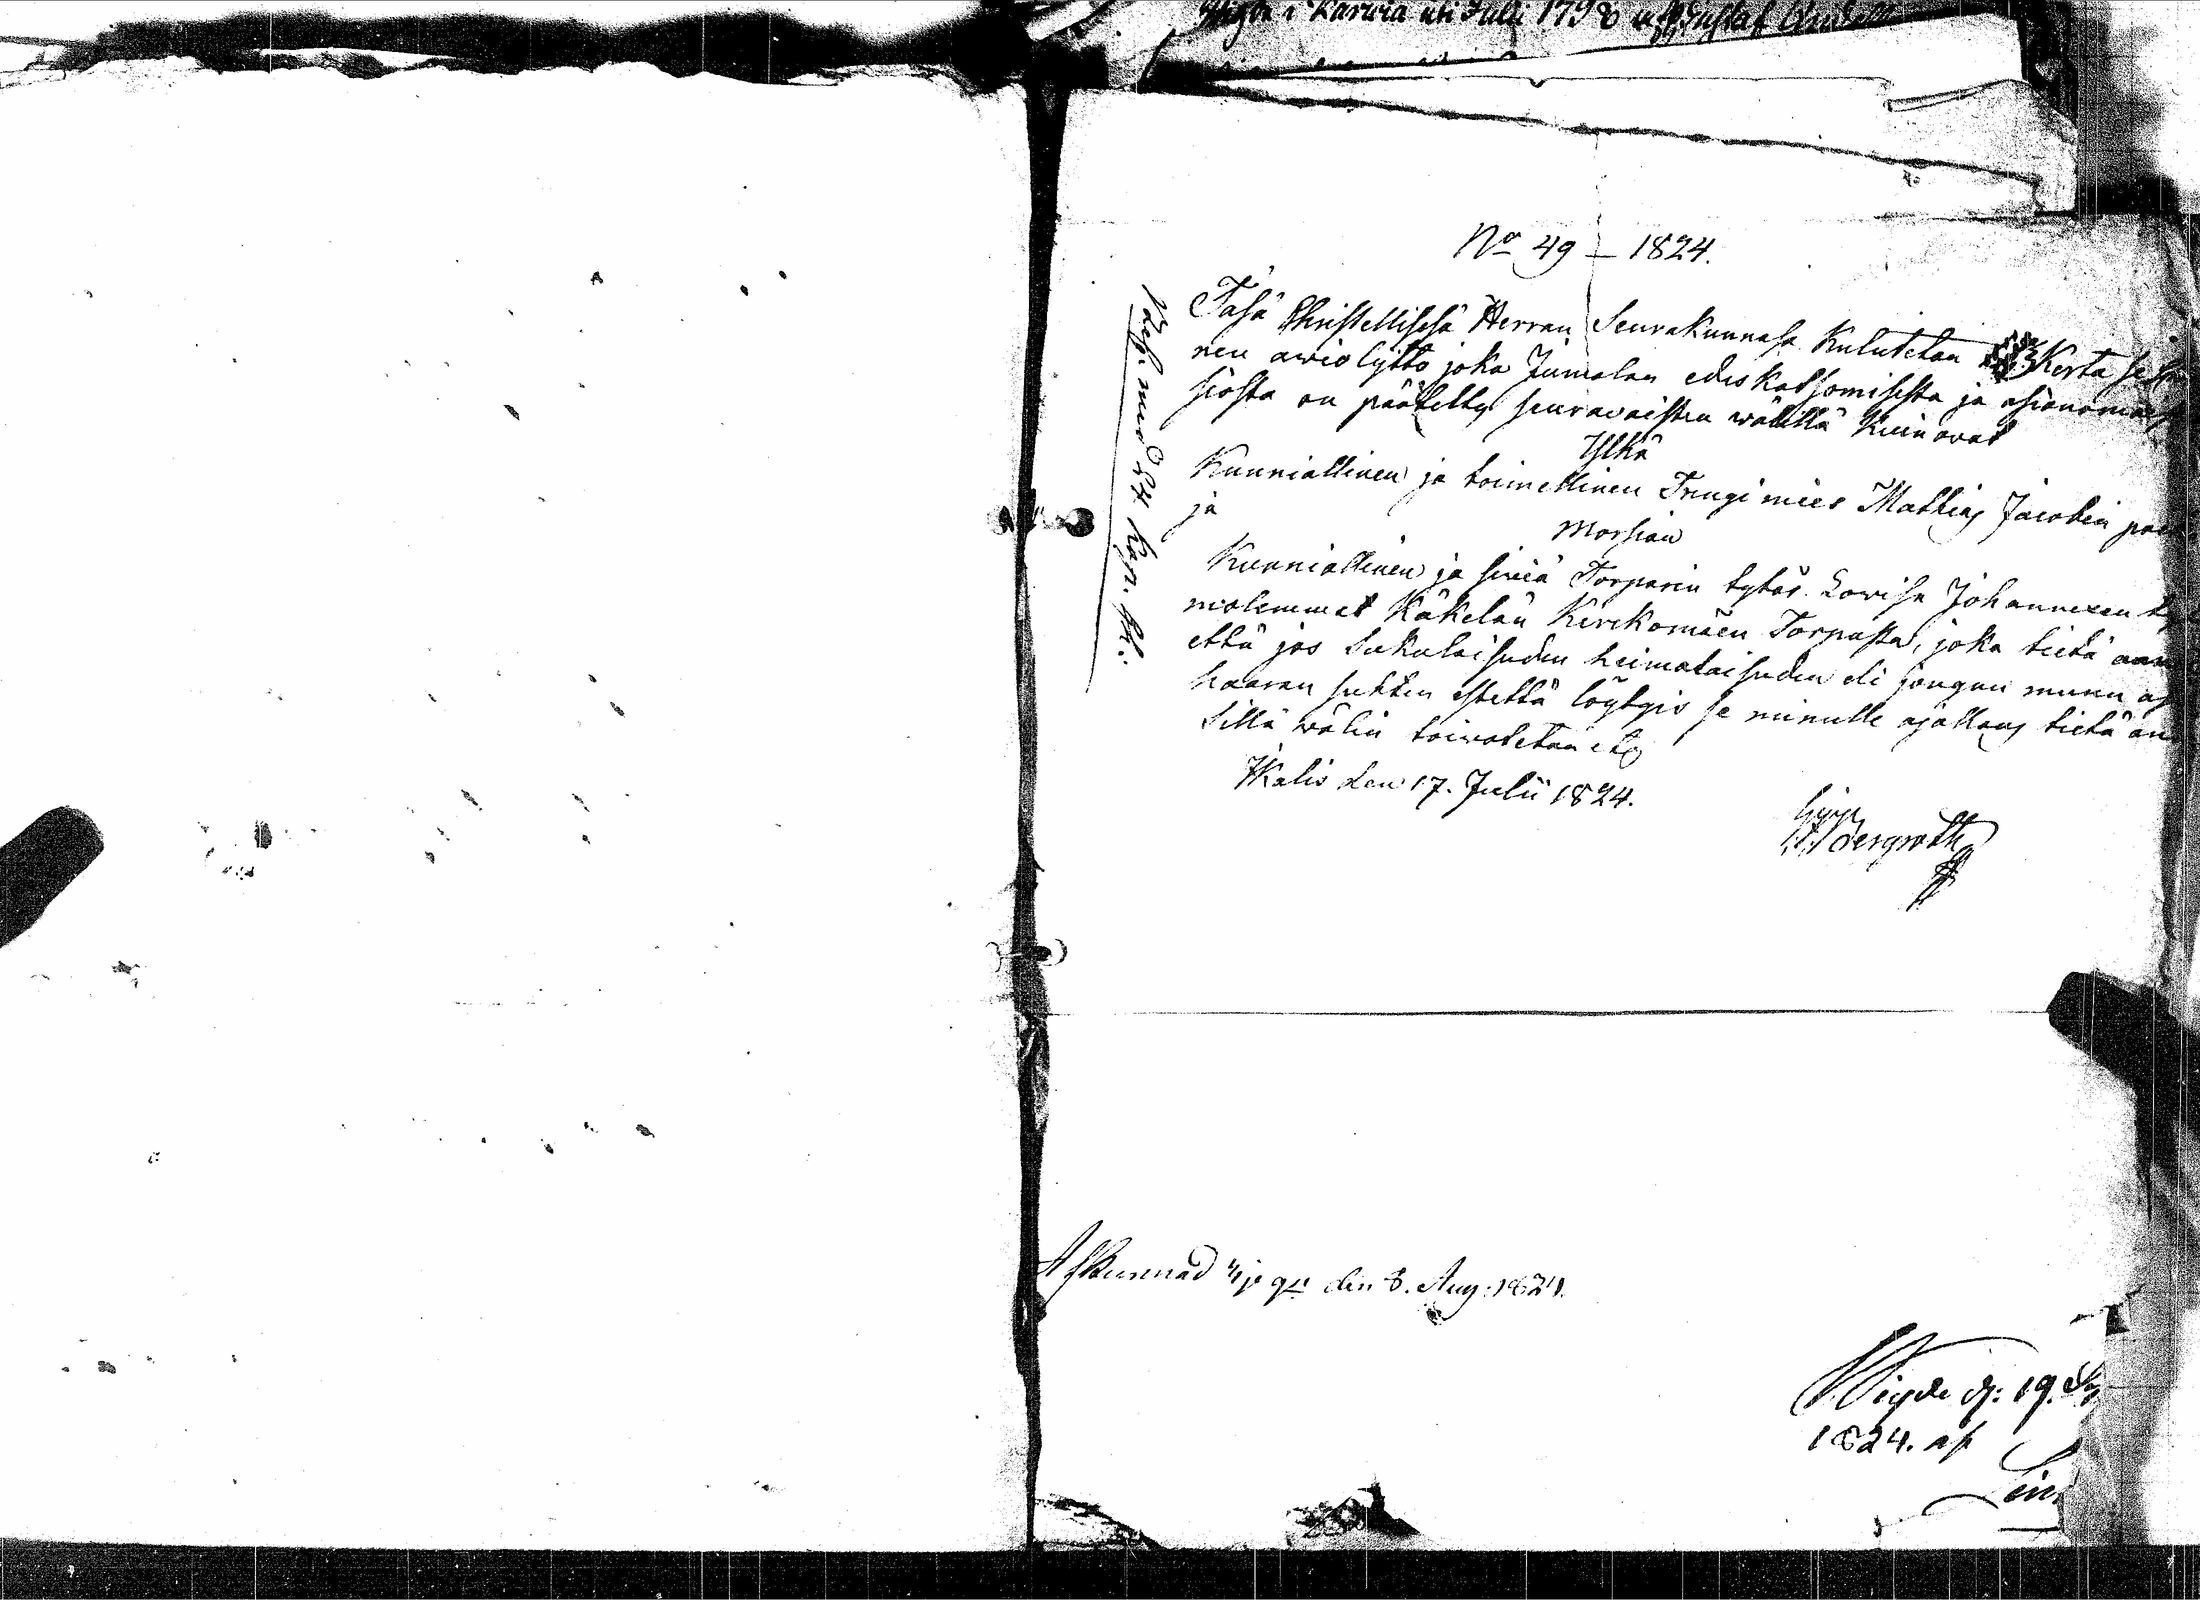 Wigde i Karvia uti Julii 1798 af Gustaf
No 49 — 1824.
Täsä Christellisesä Herran Seurakunnasa Kulutetan Kerta se
nen awiolijtto joka Jumalan edeskatsomisesta ja asianom
siosta on päätetty seuravaisten wälillä Kuin ovat
Ylkä
Kunniallinen ja toimellinen Trengi mies Mathias Jacobin po
ja
Morsian
Kunniallinen ja siviä Torparin tytär Lovisa Johannexen t
molemmat Käkelän Kirckomäen Torpasta, joka tietä an
että jos Sukulaisuden heimolaisuden eli jongun muun as
haaran suhten estettä löytyis se minulle ajallans tietä an
Sillä wälin toivotetan etc
Ikalis den 17. Julii 1824.
Bergroth
24 Kop. 
Afkunnad den 8. Aug. 1824.
Wigde d: 19.
1824. af